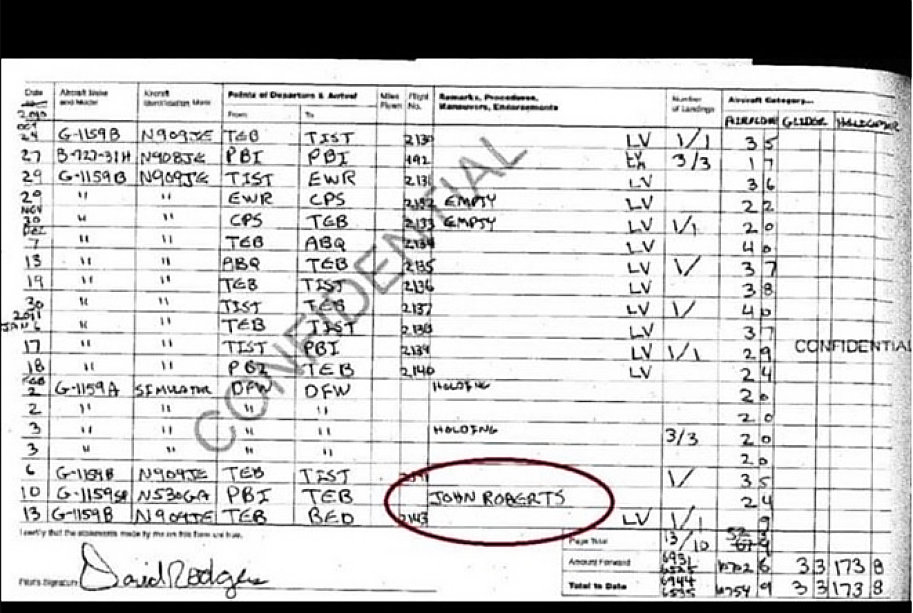 Date Aircraft Make and Model Aircraft Identification Mark Points of Departure & Arrival Miles Flown Flight No. Remarks, Procedures, Maneuvers, Endorsements Number of Landings Aircraft Category...
2010 From To AIRPLANE GLIDER HELICOPTER
OCT 24 G-1159B N909JE TEB TIST 2130 LV 1/1 3 5
27 B-727-31H N908JE PBI PBI 492 3/3 1 7
29 G-1159B N909JE TIST EWR 2131 LV 3 6
29 " " EWR CPS 2132 EMPTY LV 2 2
NOV 30 " " CPS TEB 2133 EMPTY LV 1/1 2 0
DEC 7 " " TEB ABQ 2134 LV 4 0
13 " " ABQ TEB 2135 LV 1/ 3 7
19 " " TEB TIST 2136 LV 3 8
30 " " TIST TEB 2137 LV 1/ 4 0
2011 JAN 6 " " TEB TIST 2138 LV 3 7
17 " " TIST PBI 2139 LV 1/1 2 9
18 " " PBI TEB 2140 LV 2 4
FEB 2 G-1159A SIMULATOR DFW DFW HOLDING 2 0
2 " " " " 2 0
3 " " " " HOLDING 3/3 2 0
3 " " " " 2 0
6 G-1159B N909JE TEB TIST 1/ 3 5
10 G-1159SP N530GA PBI TEB JOHN ROBERTS 2 4
13 G-1159B N909JE TEB BED 2143 LV 1/1 9
I certify that the statements made by me on this form are true.
Page Total 13/10
Amount Forward 6931 6 3 3 173 8
Pilot's Signature David Rodgers
Total to Date 6944 9 3 3 173 8
CONFIDENTIAL
CONFIDENTIAL